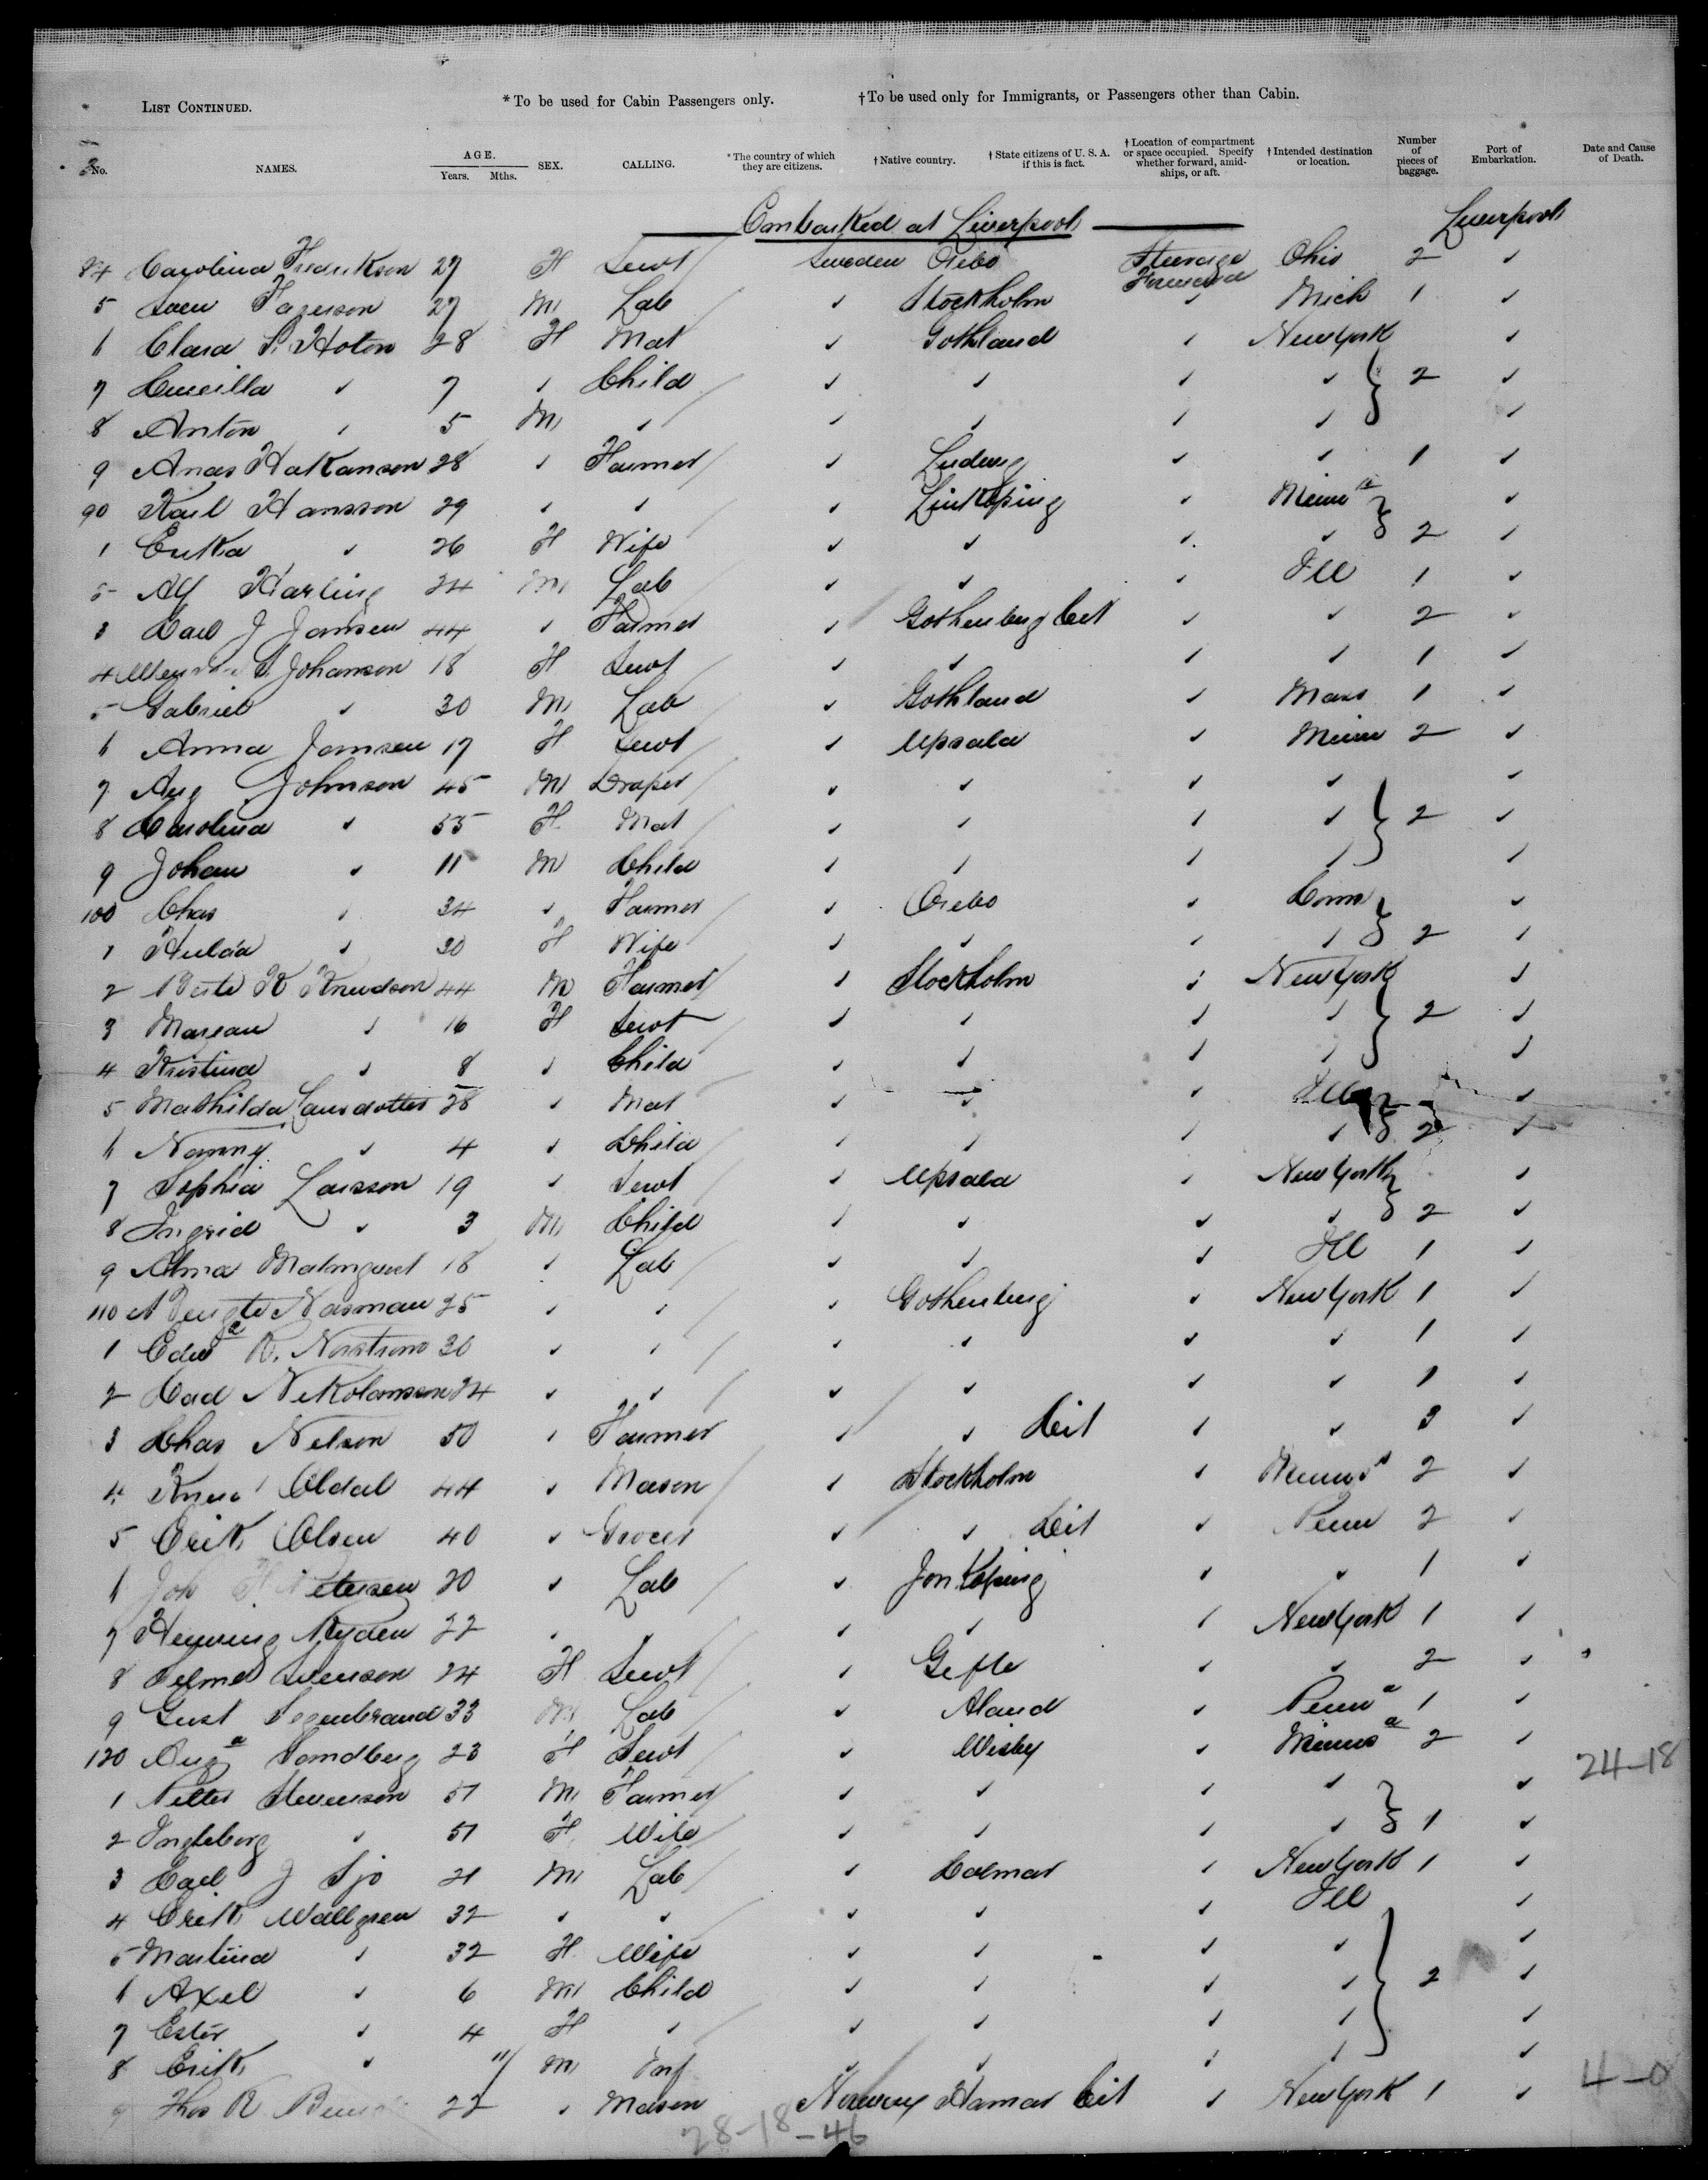 LIST CONTINUED. *To be used for Cabin Passengers only. †To be used only for Immigrants, or Passengers other than Cabin.
No. NAMES. AGE. Years. Mths. SEX. CALLING. *The country of which they are citizens. †Native country. †State citizens of U. S. A. if this is fact. †Location of compartment or space occupied. Specify whether forward, amidships, or aft. †Intended destination or location. Number of pieces of baggage. Port of Embarkation. Date and Cause of Death.
Embarked at Liverpool Liverpool
84 Carolina Fredrikson 27 F Servt Sweden Orebo Steerage Forward Ohio 2 ✓
5 27 M Lab ✓ Stockholm ✓ Mich 1 ✓
6 Clara S. Hoton 28 F Mat ✓ Gothland ✓ New York ✓
7 ✓ 7 ✓ Child ✓ ✓ ✓ ✓ 2 ✓
8 Anton ✓ 5 M ✓ ✓ ✓ ✓ ✓ ✓
9 Hakanson 28 ✓ Farmer ✓ ✓ ✓ 1 ✓
90 Karl Hansson 29 ✓ ✓ ✓ Linkoping ✓ Minn ✓
1 Erika ✓ 26 F Wife ✓ ✓ ✓ ✓ 2 ✓
Alf Harling 24 M Lab ✓ ✓ ✓ Ill 1 ✓
3 J Jansen 44 ✓ Farmer ✓ Gothenburg Cit ✓ ✓ 2 ✓
4 S. Johanson 18 F Servt ✓ ✓ ✓ ✓ 1 ✓
5 Gabriel ✓ 30 M Lab ✓ Gothland ✓ Mass 1 ✓
6 Anna Jansen 17 F Servt ✓ Upsala ✓ Minn 2 ✓
7 Aug Johnson 45 M Draper ✓ ✓ ✓ ✓ ✓
8 Carolina ✓ 55 F Mat ✓ ✓ ✓ ✓ 2 ✓
9 Johan ✓ 11 M Child ✓ ✓ ✓ ✓ ✓
100 Chas ✓ 34 ✓ Farmer ✓ Orebo ✓ Conn ✓
1 Hulda ✓ 30 F Wife ✓ ✓ ✓ ✓ 2 ✓
2 K Knudson 44 M Farmer ✓ Stockholm ✓ New York ✓
3 ✓ 16 F Servt ✓ ✓ ✓ ✓ 2 ✓
4 Kristina ✓ 8 ✓ Child ✓ ✓ ✓ ✓ ✓
5 Mathilda Larsdotter 28 ✓ Mat ✓ ✓ ✓ Ill ✓
6 Nanny ✓ 4 ✓ Child ✓ ✓ ✓ ✓ 2 ✓
7 Sophia Larsson 19 ✓ Servt ✓ Upsala ✓ New York ✓
8 Ingrid ✓ 3 M Child ✓ ✓ ✓ ✓ 2 ✓
9 Alma Malmquist 18 ✓ Lab ✓ ✓ ✓ Ill 1 ✓
110 Nasman 25 ✓ ✓ ✓ Gothenburg ✓ New York 1 ✓
1 R. Norstrom 30 ✓ ✓ ✓ ✓ ✓ ✓ 1 ✓
2 Nikolanson 24 ✓ ✓ ✓ ✓ ✓ ✓ 1 ✓
3 Chas Nelson 50 ✓ Farmer ✓ ✓ Cit ✓ ✓ 3 ✓
4 Oldal 44 ✓ Mason ✓ Stockholm ✓ 2 ✓
5 Erik Olsen 40 ✓ Grocer ✓ ✓ Cit ✓ Penn 2 ✓
6 Joh Petersen 20 ✓ Lab ✓ Jonkoping ✓ ✓ 1 ✓
7 Henning Ryden 22 ✓ ✓ ✓ ✓ ✓ New York 1 ✓
8 Selma Svenson 24 F Servt ✓ Gefle ✓ ✓ 2 ✓
9 Gust Segenbrand 33 M Lab ✓ Aland ✓ Penna 1 ✓
120 Auga Sandberg 23 F Servt ✓ Wisby ✓ 2 ✓ 24-18
1 Stevenson 51 M Farmer ✓ ✓ ✓ ✓ ✓
2 Ingleborg ✓ 51 F Wife ✓ ✓ ✓ ✓ 1 ✓
3 Carl J Sjo 21 M Lab ✓ Colmar ✓ New York 1 ✓
4 Erik Wallgren 32 ✓ ✓ ✓ ✓ ✓ Ill ✓
5 Martina ✓ 32 F Wife ✓ ✓ ✓ ✓ ✓
6 Axel ✓ 6 M Child ✓ ✓ ✓ ✓ 2 ✓
7 Ester ✓ 4 F ✓ ✓ ✓ ✓ ✓ ✓
8 Erik ✓ 11 M Inf ✓ ✓ ✓ ✓ ✓
9 Thos R 22 ✓ Mason Norway Hamar Cit ✓ New York 1 ✓ 4-0
28-18-46